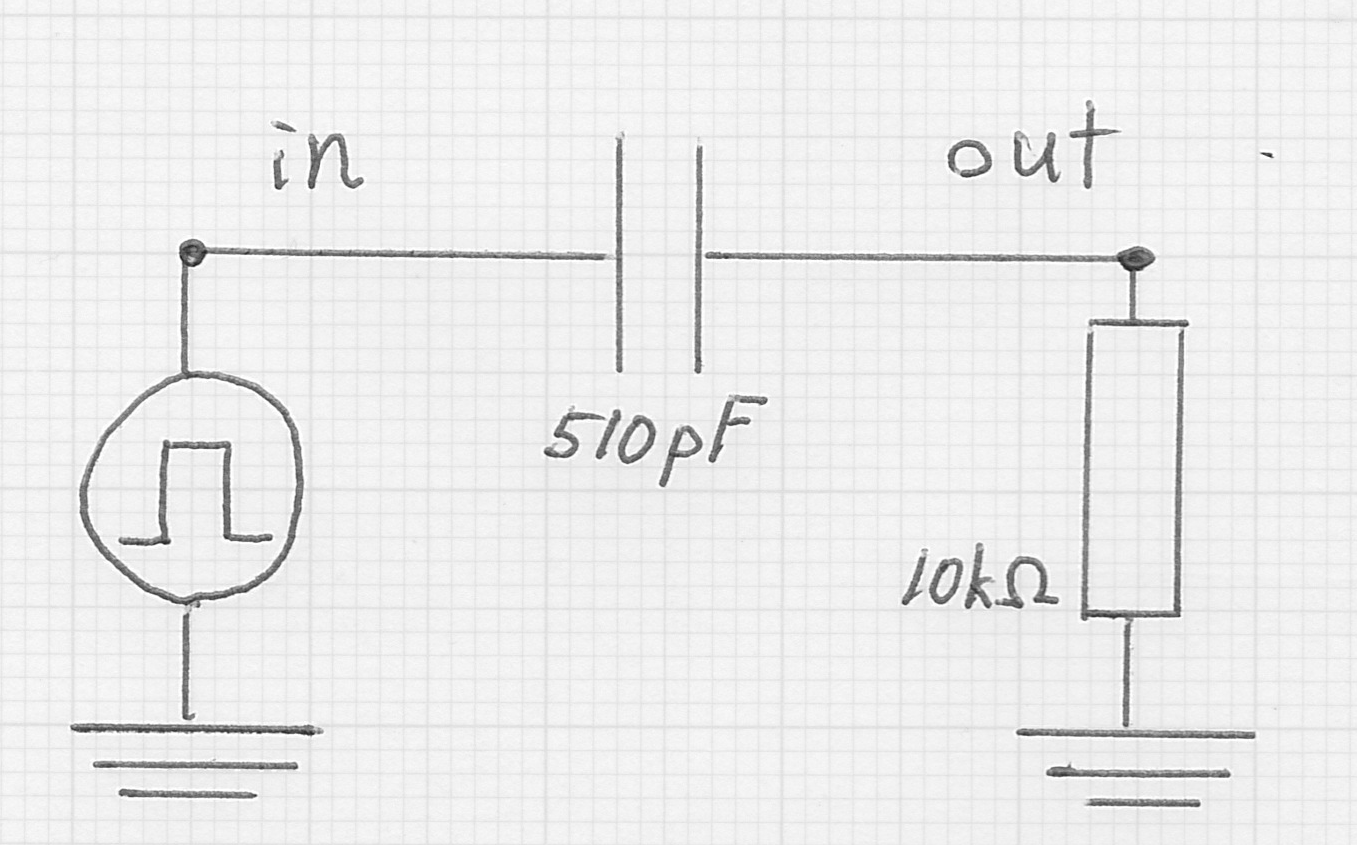 in
out
510pF
10kΩ